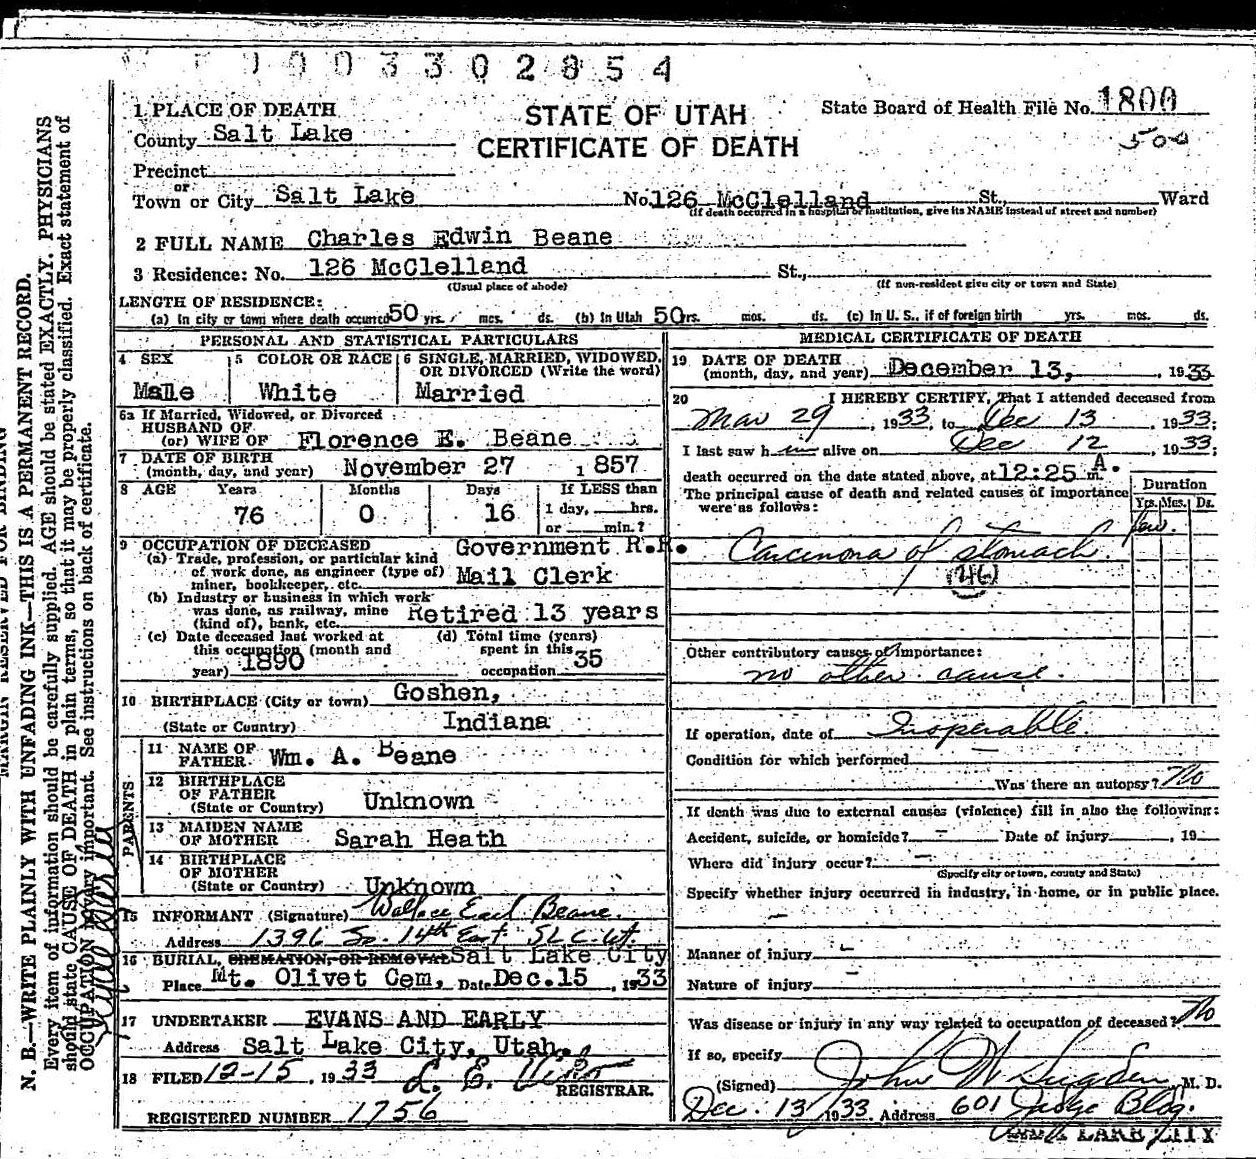 0003302854
1 PLACE OF DEATH
County Salt Lake
Precinct
or
Town or City Salt Lake
STATE OF UTAH
CERTIFICATE OF DEATH
State Board of Health File No. 1800
500
No. 126 McClelland St., Ward
(If death occurred in a hospital or institution, give its NAME instead of street and number)
2 FULL NAME Charles Edwin Beane
3 Residence: No. 126 McClelland St.,
(Usual place of abode) (If non-resident give city or town and State)
LENGTH OF RESIDENCE:
(a) In city or town where death occurred 50 yrs. mos. ds. (b) In Utah 50 yrs. mos. ds. (c) In U. S., if of foreign birth yrs. mos. ds.
PERSONAL AND STATISTICAL PARTICULARS
4 SEX
Male
5 COLOR OR RACE
White
6 SINGLE, MARRIED, WIDOWED,
OR DIVORCED (Write the word)
Married
6a If Married, Widowed, or Divorced
HUSBAND OF
(or) WIFE OF Florence E. Beane
7 DATE OF BIRTH
(month, day, and year) November 27 1857
8 AGE Years Months Days If LESS than
76 0 16 1 day, hrs.
or min.?
9 OCCUPATION OF DECEASED Government R.R.
(a) Trade, profession, or particular kind
of work done, as engineer (type of) Mail Clerk
miner, bookkeeper, etc.
(b) Industry or business in which work
was done, as railway, mine Retired 13 years
(kind of), bank, etc.
(c) Date deceased last worked at
this occupation (month and
year) 1890
(d) Total time (years)
spent in this 35
occupation
10 BIRTHPLACE (City or town) Goshen,
(State or Country) Indiana
PARENTS
11 NAME OF
FATHER Wm. A. Beane
12 BIRTHPLACE
OF FATHER
(State or Country) Unknown
13 MAIDEN NAME
OF MOTHER Sarah Heath
14 BIRTHPLACE
OF MOTHER
(State or Country) Unknown
15 INFORMANT (Signature) Wallace Earl Beane.
Address 1396 So. 14th East SLC. Ut.
16 BURIAL, CREMATION, OR REMOVAL Salt Lake City
Place Mt. Olivet Cem, Date Dec.15, 1933
17 UNDERTAKER EVANS AND EARLY
Address Salt Lake City, Utah.
18 FILED 12-15, 1933 L. E.
REGISTRAR.
REGISTERED NUMBER 1756
MEDICAL CERTIFICATE OF DEATH
19 DATE OF DEATH
(month, day, and year) December 13, 1933
20 I HEREBY CERTIFY, That I attended deceased from
Mar 29, 1933, to Dec 13, 1933;
I last saw him alive on Dec 12, 1933;
death occurred on the date stated above, at 12:25 A. m.
The principal cause of death and related causes of importance
were as follows:
Duration
Yrs. Mos. Ds.
Carcinoma of stomach. few.
(46)
Other contributory causes of importance:
no other cause.
If operation, date of Inoperable.
Condition for which performed
Was there an autopsy? No
If death was due to external causes (violence) fill in also the following:
Accident, suicide, or homicide? – Date of injury , 19
Where did injury occur? –
(Specify city or town, county and State)
Specify whether injury occurred in industry, in home, or in public place.
Manner of injury –
Nature of injury –
Was disease or injury in any way related to occupation of deceased? No
If so, specify
(Signed) John W Sugden, M. D.
Dec. 13, 1933. Address 601 Judge Bldg.
LAKE CITY
MARGIN RESERVED FOR BINDING
N. B.—WRITE PLAINLY WITH UNFADING INK—THIS IS A PERMANENT RECORD.
Every item of information should be carefully supplied. AGE should be stated EXACTLY. PHYSICIANS
should state CAUSE OF DEATH in plain terms, so that it may be properly classified. Exact statement of
OCCUPATION is very important. See instructions on back of certificate.